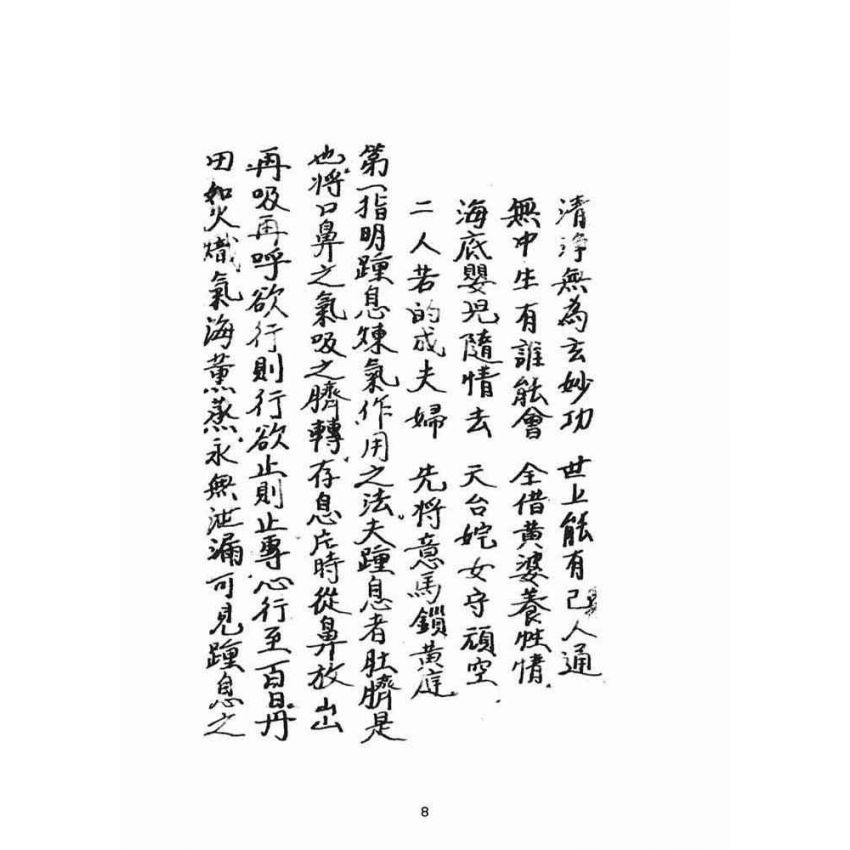 清淨無為玄妙功 世上能有己人通
無中生有誰能會 全借黃婆養性情.
海底嬰兒隨情去 天台姹女守頑空.
二人若的成夫婦 先將意馬鎖黃庭.
第一指明踵息煉氣作用之法。夫踵息者肚臍是
也.將口鼻之氣吸之臍轉.存息片時從鼻放出
再吸再呼欲行則行欲止則止專心行至百日.丹
田如火熾氣海薰蒸.永無泄漏可見踵息之
8